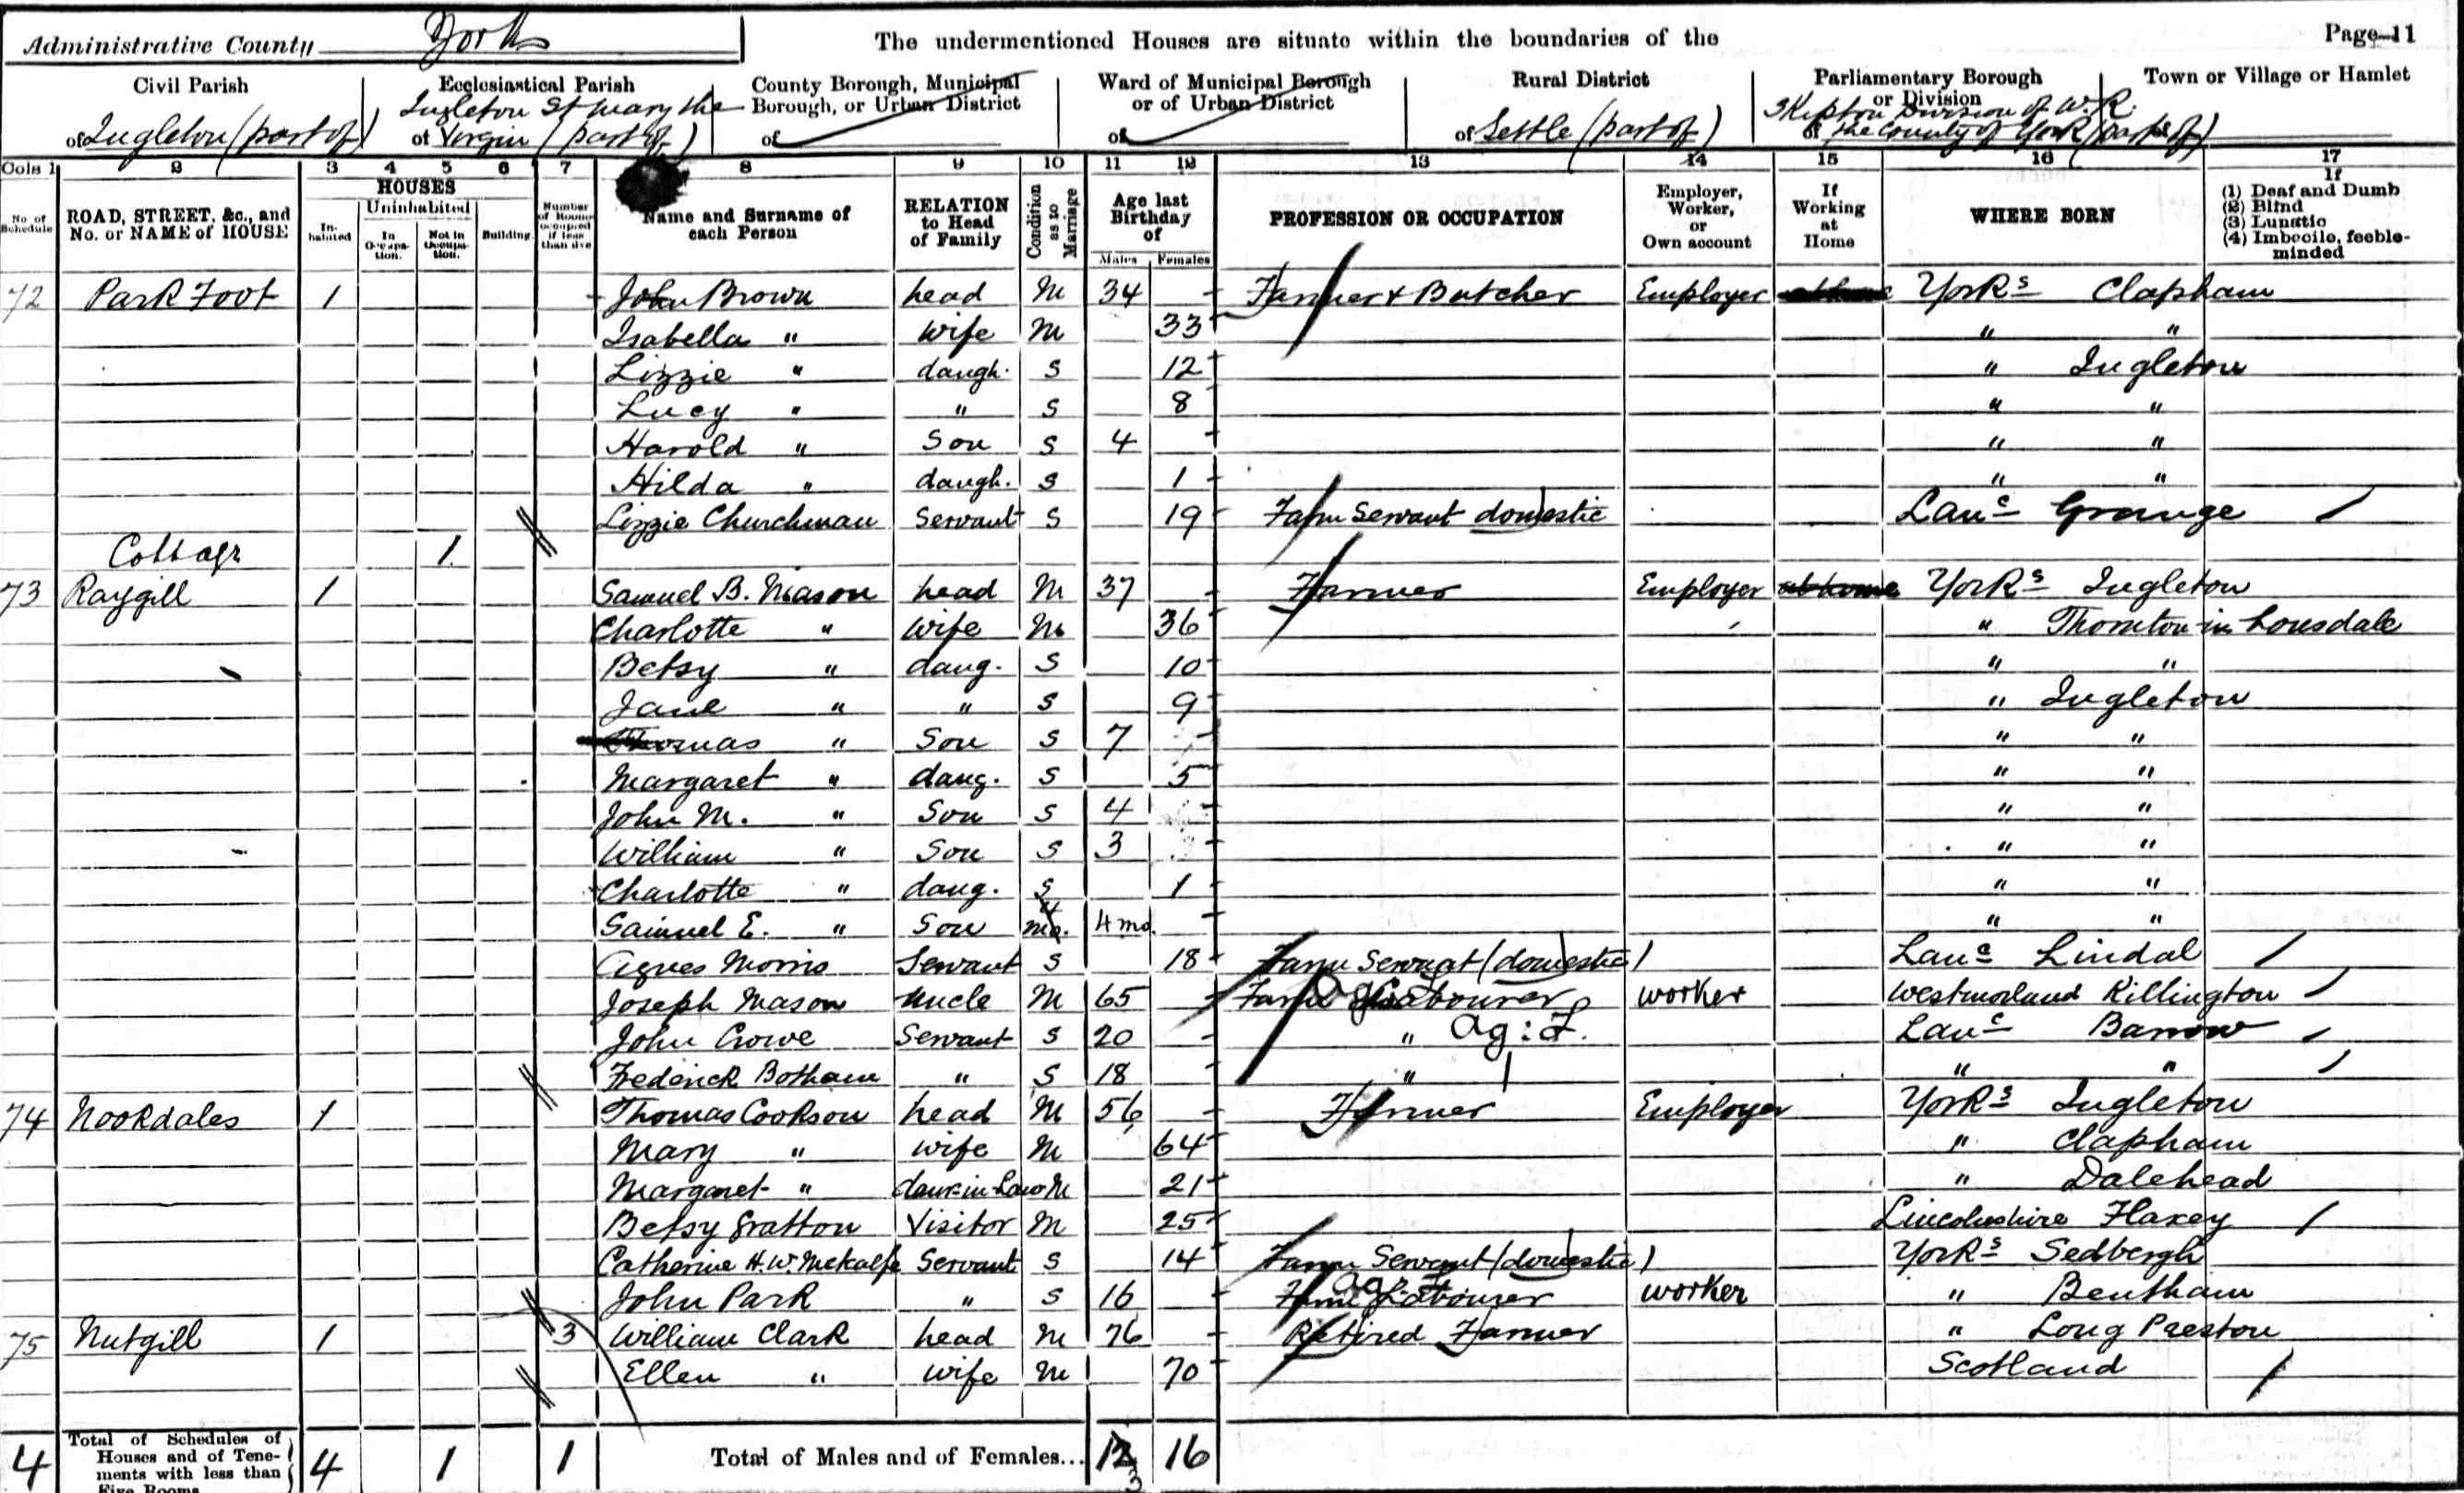 Administrative County York The undermentioned Houses are situate within the boundaries of the Page 11
Civil Parish Ecclesiastical Parish County Borough, Municipal Borough, or Urban District Ward of Municipal Borough or of Urban District Rural District Parliamentary Borough or Division Town or Village or Hamlet
of Ingleton (part of) Ingleton St Mary the of Virgin (part of) of of of Settle (part of) Skipton Division of W.R. of the County of York (part of)
Cols 1 2 3 4 5 6 7 8 9 10 11 12 13 14 15 16 17
No. of Schedule ROAD, STREET, &c., and No. or NAME of HOUSE HOUSES Inhabited Uninhabited In Occupation. Not in Occupation. Building Number of Rooms occupied if less than five Name and Surname of each Person RELATION to Head of Family Condition as to Marriage Age last Birthday of Males Females PROFESSION OR OCCUPATION Employer, Worker, or Own account If Working at Home WHERE BORN If (1) Deaf and Dumb (2) Blind (3) Lunatic (4) Imbecile, feeble-minded
72 Park Foot 1 John Brown head M 34 Farmer & Butcher Employer at home Yorks Clapham
Isabella " wife M 33 " "
Lizzie " daugh. S 12 " Ingleton
Lucy " " S 8 " "
Harold " Son S 4 " "
Hilda " daugh. S 1 " "
Lizzie Churchman Servant S 19 Farm Servant domestic Lanc Grange
Cottage 1
73 Raygill 1 Samuel B. Mason head M 37 Farmer Employer at home Yorks Ingleton
Charlotte " wife M 36 " Thornton in Lonsdale
Betsy " daug. S 10 " "
Jane " " S 9 " Ingleton
Thomas " Son S 7 " "
Margaret " daug. S 5 " "
John M. " Son S 4 " "
William " Son S 3 " "
Charlotte " daug. S 1 " "
Samuel E. " Son 4 mo. " "
Agnes Morris Servant S 18 Farm Servant (domestic) Lanc Lindal
Joseph Mason Uncle M 65 Farm Labourer worker Westmorland Killington
John Crowe Servant S 20 " Ag: L. Lanc Barrow
Frederick Botham " S 18 " " "
74 Nookdales 1 Thomas Cookson head M 56 Farmer Employer Yorks Ingleton
Mary " wife M 64 " Clapham
Margaret " daur-in-Law M 21 " Dalehead
Betsy Gratton Visitor M 25 Lincolnshire Haxey
Catherine H. W. Metcalfe Servant S 14 Farm Servant (domestic) Yorks Sedbergh
John Park " S 16 Farm Labourer worker " Bentham
75 Nutgill 1 3 William Clark head M 76 Retired Farmer " Long Preston
Ellen " wife M 70 Scotland
4 Total of Schedules of Houses and of Tenements with less than Five Rooms 4 1 1 Total of Males and of Females... 13 16